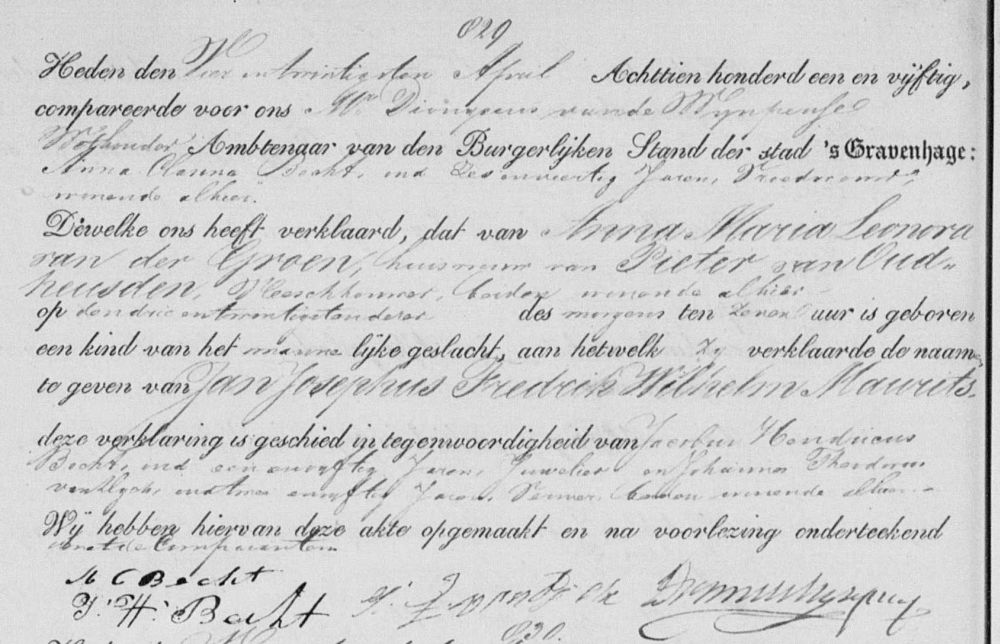 829
Heden den Vier en twintigsten April Achttien honderd een en vijftig,
compareerde voor ons Mr. Dionysius van de Wijnpersse
Wethouder Ambtenaar van den Burgerlijken Stand der stad 's Gravenhage:
Anna Becht, oud Zes en veertig Jaren, Vroedvrouw,
wonende alhier.
Dewelke ons heeft verklaard, dat van Anna Maria Leonora
van der Groen, huisvrouw van Pieter van Oud=
heusden, Vleeschhouwer, beiden wonende alhier
op den drie en twintigsten dezer des morgens ten Zeven uur is geboren
een kind van het manne lijke geslacht, aan hetwelk Zy verklaarde de naamen
te geven van Jan Josephus Fredrik Wilhelm Maurits.
deze verklaring is geschied in tegenwoordigheid van Jacobus Hendricus
Becht, oud een en vyftig Jaren, Juwelier en Johannes Theodorus
van oud twee en vyftig Jaren, wonende alhier.
Wij hebben hiervan deze akte opgemaakt en na voorlezing onderteekend
met de Comparanten
A C Becht
J. H. Becht
830.